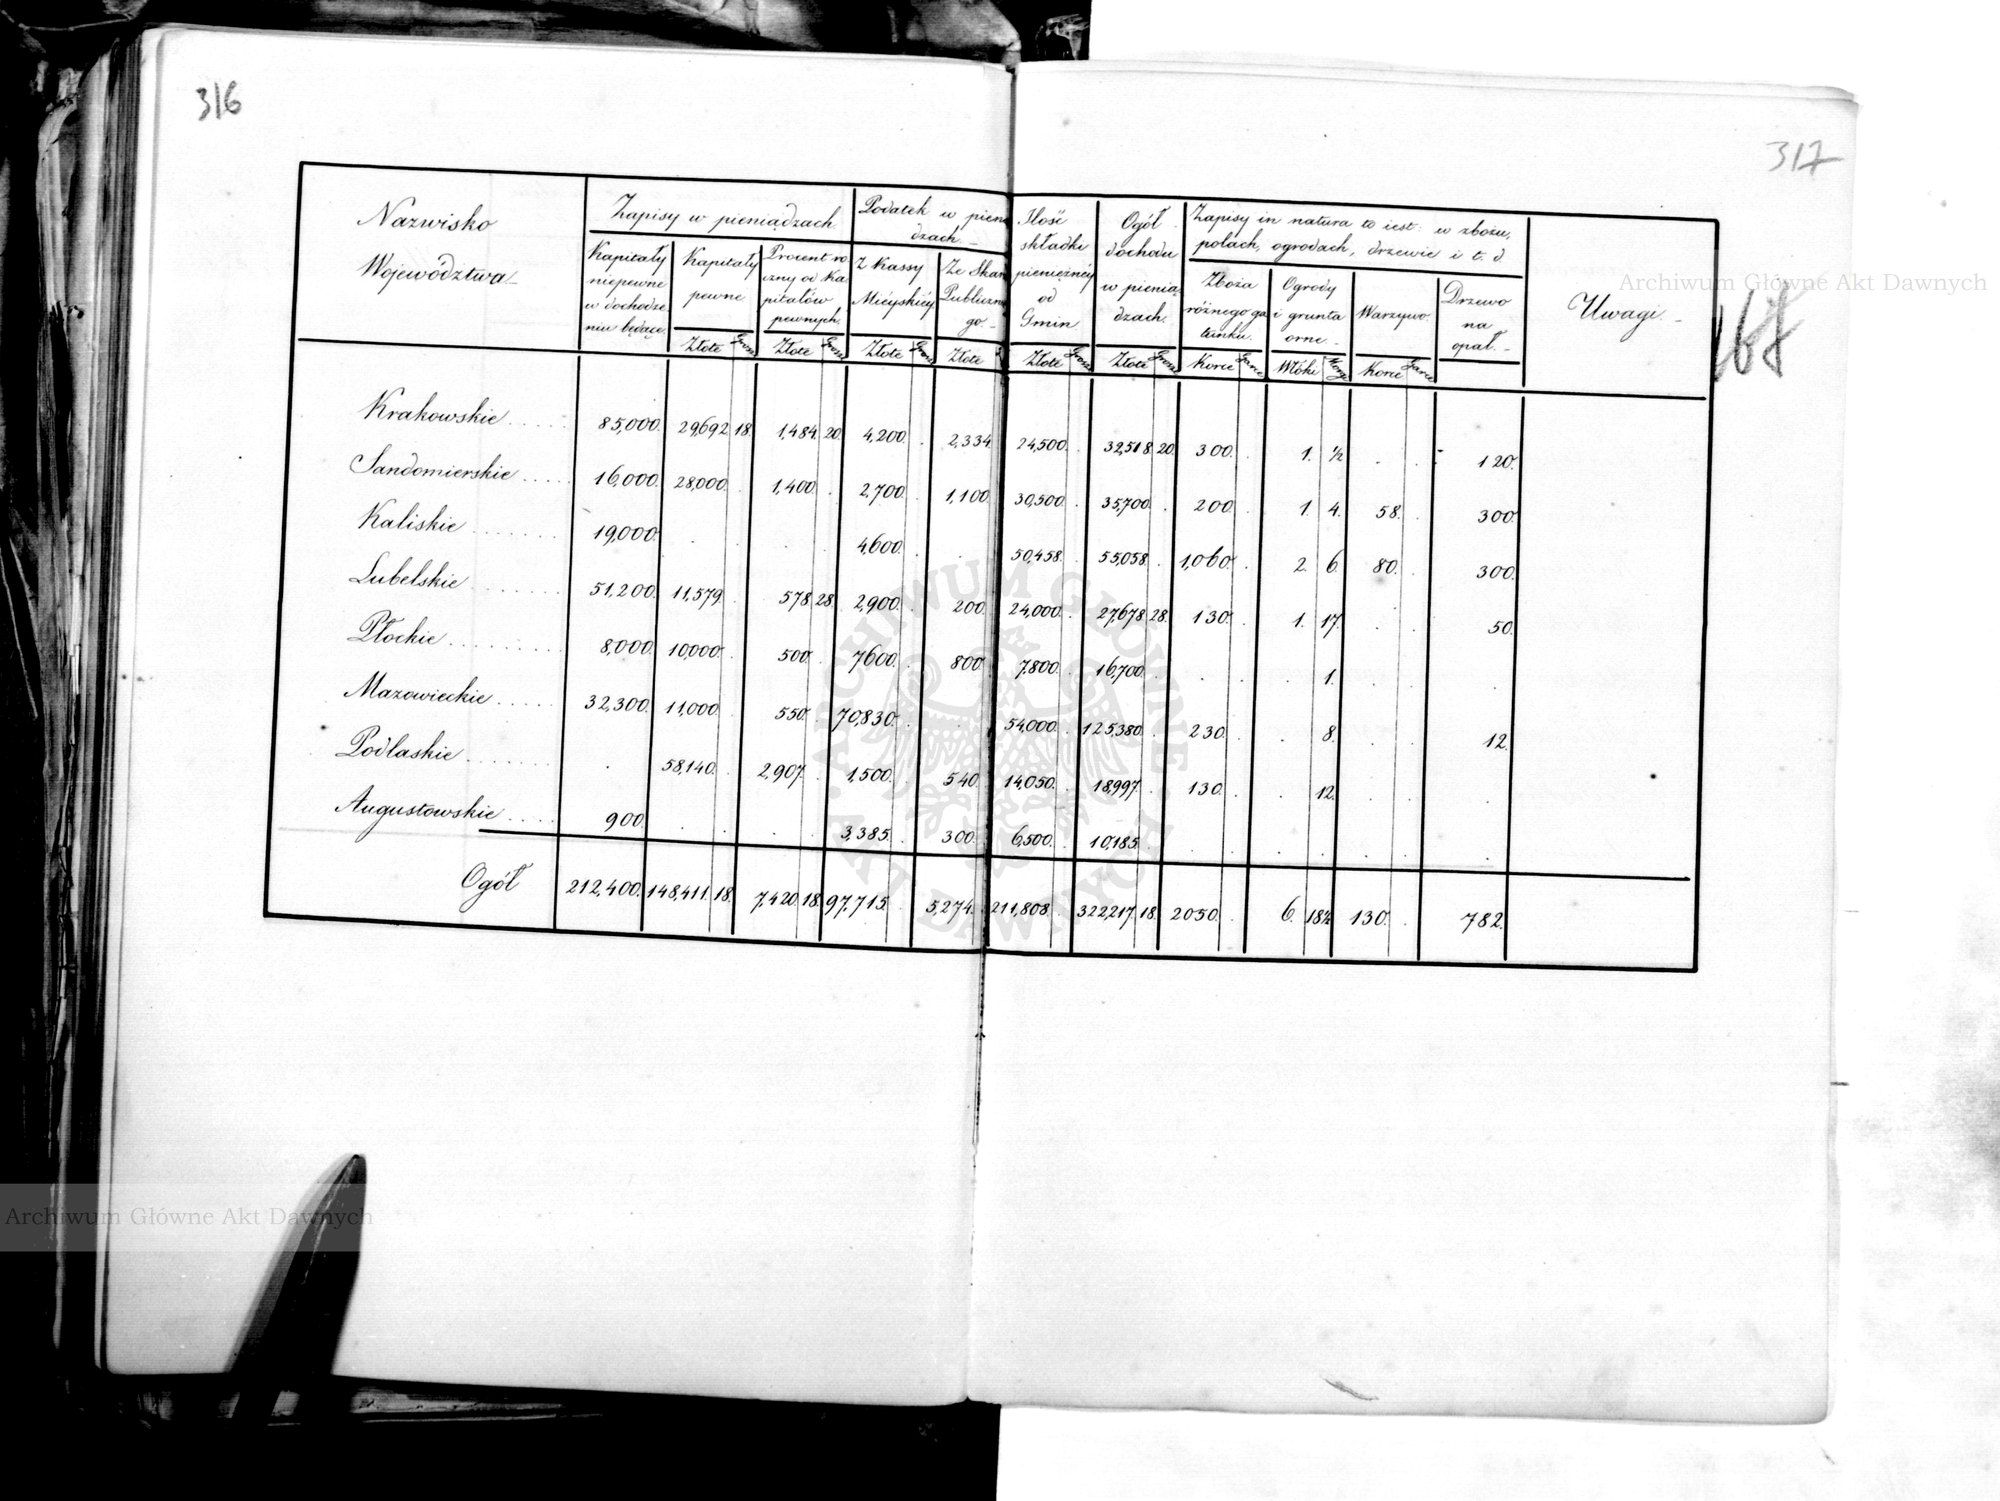 316
317
168
Nazwisko
Województwa
Zapisy w pieniądzach
Kapitały
niepewne
w dochodze
niu będące
Kapitały
pewne
Złote Grosz
Procent ro
czny od Ka
pitałów
pewnych
Złote Grosz
Podatek w pienią
dzach
Z Kassy
Mieyskiéy
Złote Grosz
Ze Skar
Publiczne
go
Złote
Ilość
składki
pieniężnéy
od
Gmin
Złote Grosz
Ogół
dochodu
w pienią
dzach
Złote Grosz
Zapisy in natura to iest: w zbożu,
polach, ogrodach, drzewie i t. d.
Zboża
różnego ga
tunku
Korce Garce
Ogrody
i grunta
orne
Włóki Morgi
Warzywo
Korce Garce
Drzewo
na
opał
Uwagi
Krakowskie 85,000. 29,692 18. 1,484 20. 4,200. 2,334 24,500. 32,518 20. 300. 1. ½ 120.
Sandomierskie 16,000. 28,000. 1,400. 2,700. 1,100. 30,500. 35,700. 200. 1. 4. 58. 300.
Kaliskie 19,000. 4,600. 50,458. 55,058. 1,060. 2. 6. 80. 300.
Lubelskie 51,200. 11,579. 578 28. 2,900. 200. 24,000. 27,678 28. 130. 1. 17. 50.
Płockie 8,000. 10,000. 500. 7600. 800. 7,800. 16,700. 1.
Mazowieckie 32,300. 11,000. 550. 70,830. 54,000. 125,380. 230. 8. 12.
Podlaskie 58,140. 2,907. 1,500. 540. 14,050. 18,997. 130. 12.
Augustowskie 900. 3,385. 300. 6,500. 10,185.
Ogół 212,400. 148,411. 18. 7,420. 18. 97,715. 5,274. 211,808. 322,217. 18. 2050. 6. 18½ 130. 782.
Archiwum Główne Akt Dawnych
Archiwum Główne Akt Dawnych
ARCHIWUM GŁÓWNE AKT DAWNYCH